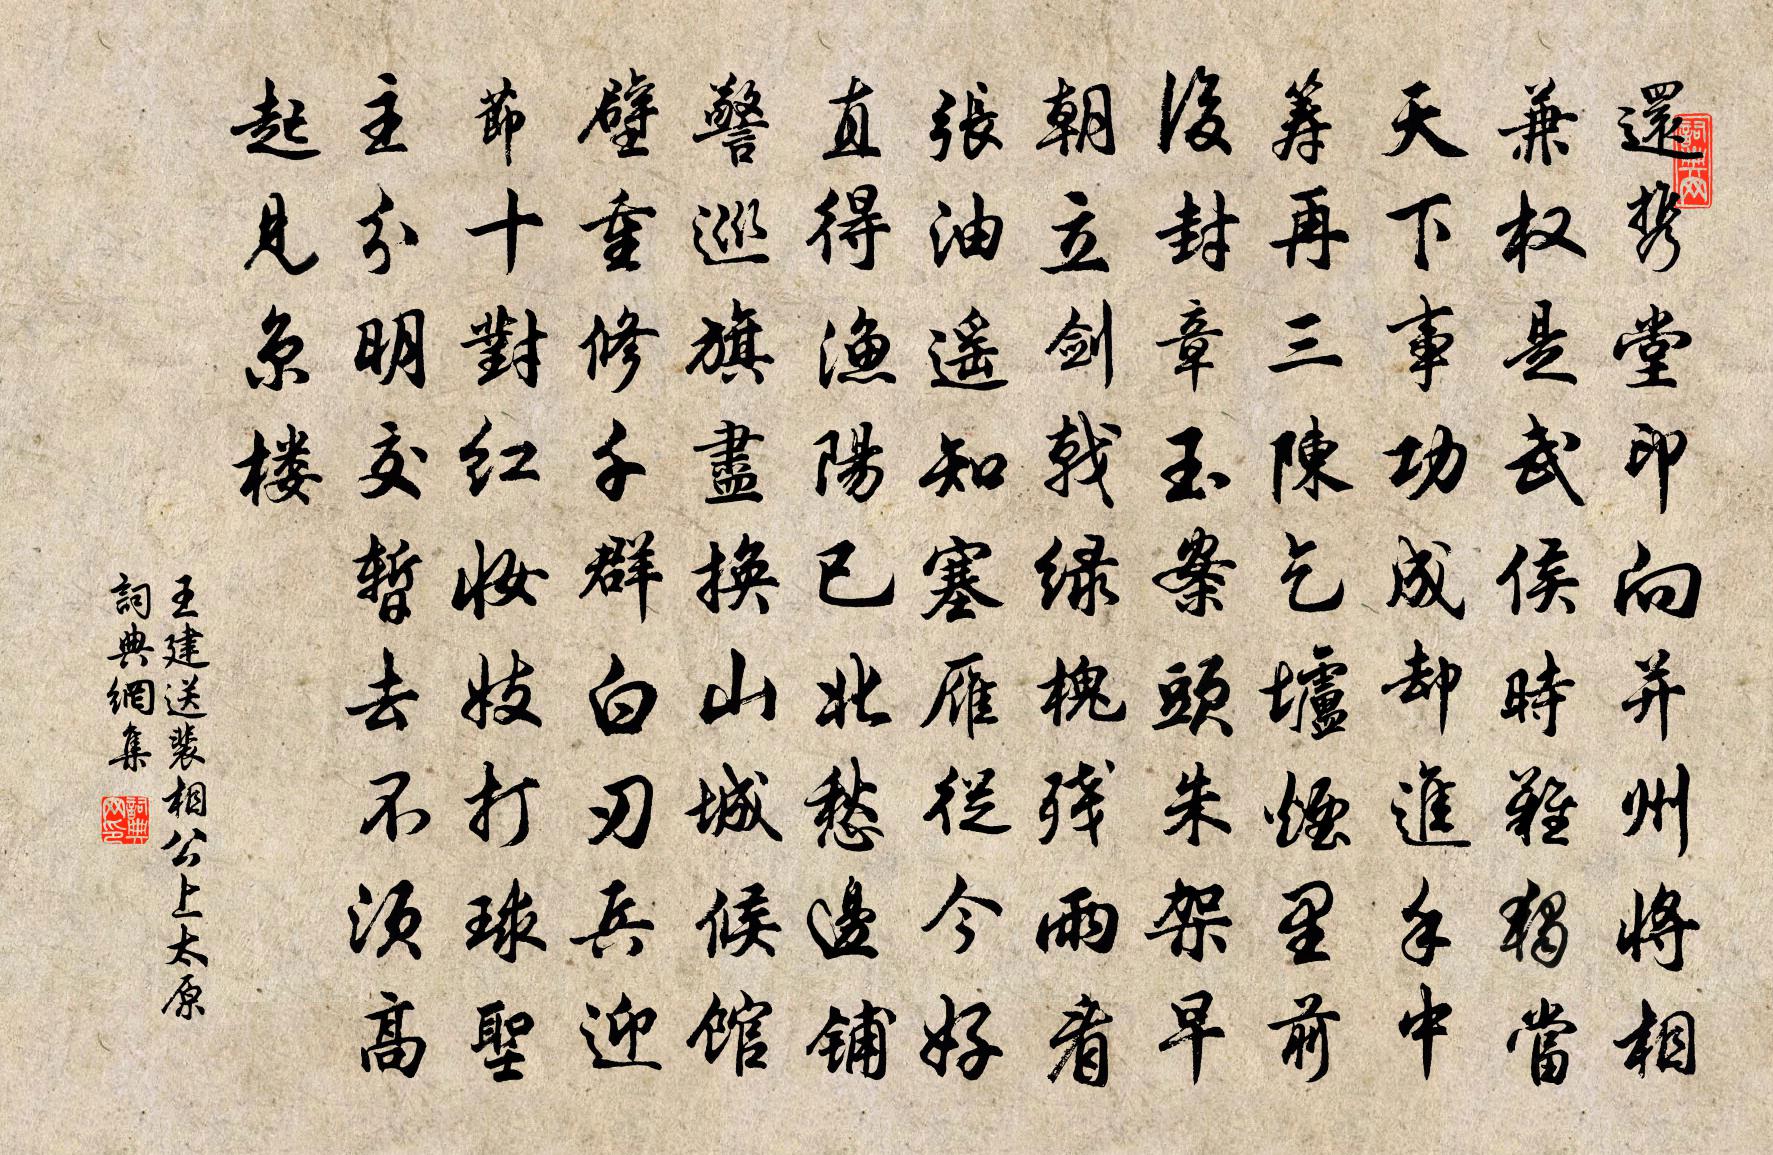 還携堂印向并州將相
兼权是武侯時難獨當
天下事功成却進手中
籌再三陳乞壚煙里前
後封章玉案頭朱架早
朝立剑戟绿槐残雨看
張油遥知塞雁從今好
直得漁陽已北愁邊铺
警巡旗盡換山城候馆
壁重修千群白刃兵迎
節十對红妆妓打球聖
主分明交暫去不须高
起見京楼
王建送裴相公上太原
詞典網集
詞典网
詞典网印